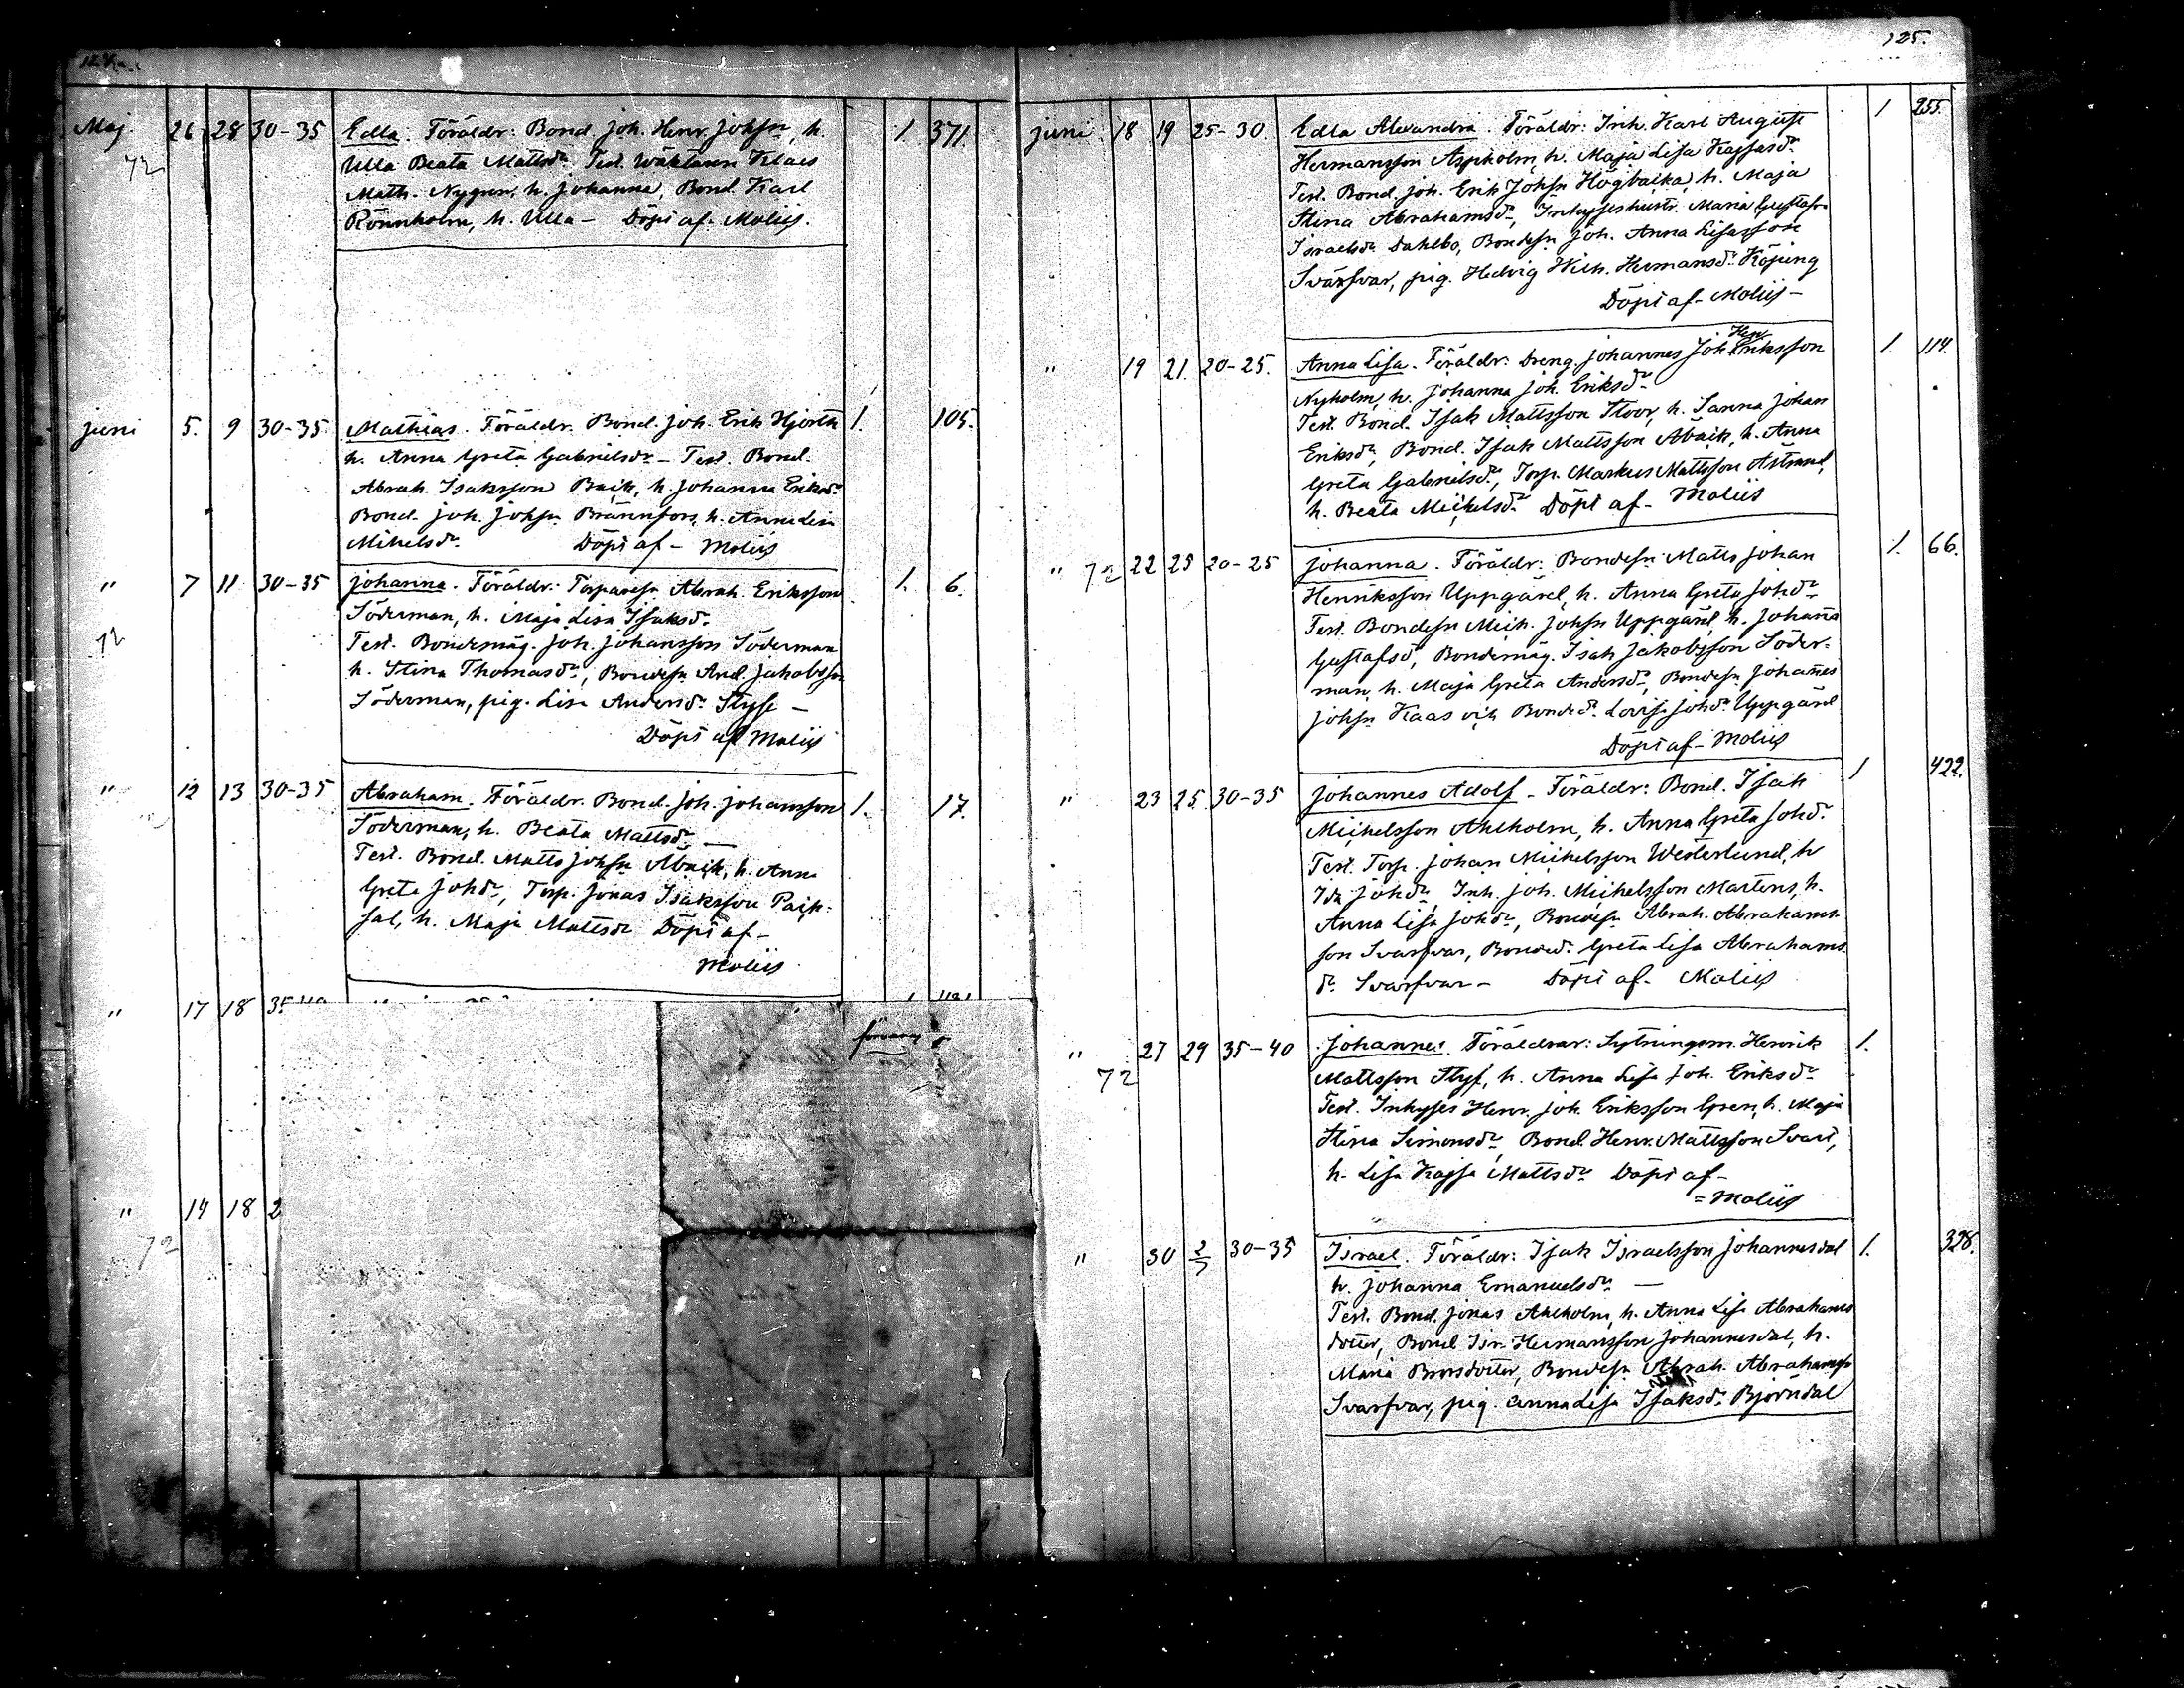 124
Maj. 26 28 30-35 Edla. Föräldr: Bond. Joh. Henr. Johsn, h. 1. 371.
72 Ulla Beata Mattsdr. Test. Waktaren Klaes
Math. Nygren, h. Johanna, Bond. Karl
Rönnholm, h. Ulla – Döpt af. Moliis.
juni 5. 9 30-35 Mathias. Föräldr. Bond. Joh. Erik Hjorth 1. 105.
h. Anna Greta Gabrielsdr – Test. Bond.
Abrah. Isaksson Back, h. Johanna Eriksdr
Bond. Joh. Johsn Brännfors, h. Anna Lisa
Mihelsdr. Döpt af – Moliis
" 7 11 30-35 Johanna. Föräldr: Torparesn Abrah. Eriksson 1. 6.
72 Söderman, h. Maja Lisa Isaksdr.
Test. Bondemåg. Joh. Johansson Söderman
h. Stina Thomasdr, Bondesn And. Jakobsson
Söderman, pig. Lisa Andersdr. Styf –
Döpt af Moliis
" 12 13 30-35 Abraham. Föräldr. Bond. Joh. Johansson 1. 17.
Söderman, h. Beata Mattsdr –
Test. Bond. Matts Johsn Abaik, h. Anna
Greta Johdr, Torp. Jonas Isaksson Paik-
sal, h. Maja Mattsdr Döpt af –
Moliis
" 17 18
" 14 18 2
72
125.
juni 18 19 25-30. Edla Alexandra. Föräldr: Inh. Karl August 1 255.
Hermansson Aspholm, h. Maja Lisa Kajsasdr.
Test. Bond. Joh. Erik Johsn Högbacka, h. Maja
Stina Abrahamsdr, Inhyseshustr. Maria Gustafva
Israelsdr Dahlbo, Bondesn Joh. Anna Lisasson
Svarfvar, pig. Hedvig Wilh. Hermansdr Köping
Döpt af – Moliis –
Henr
" 19 21. 20-25. Anna Lisa. Föräldr: Dreng. Johannes Joh. Eriksson 1. 114.
Nyholm, h. Johanna Joh. Eriksdr
Test. Bond. Isak Mattsson Stoor, h. Sanna Johan
Eriksdr, Bond. Isak Mattsson Abaik, h. Anna
Greta Gabrielsdr, Torp. Markus Mattsson Åstrand,
h. Beata Michelsdr Döpt af – Moliis
" 72 22 25 20-25 Johanna. Föräldr: Bondesn Matts Johan 1. 66.
Henriksson Uppgård, h. Anna Greta Johdr
Test. Bondesn Mich. Johsn Uppgård, h. Johanna
Gustafsdr, Bondemåg. Isak Jakobsson Söder-
man, h. Maja Greta Andersdr, Bondesn Johannes
Johsn Kaas och Bonded. Lovisa Johdr Uppgård
Döpt af – Moliis
" 23 25. 30-35 Johannes Adolf – Föräldr: Bond. Isak 1 422.
Michelsson Ahlholm, h. Anna Greta Johdr.
Test. Torp. Johan Michelsson Westerlund, h
Ida Johdr, Inh. Joh. Michelsson Martens, h.
Anna Lisa Johdr, Bondesn Abrah. Abrahams-
son Svarfvar, Bonded. Greta Lisa Abrahams
dr Svarfvar – Döpt af – Moliis
" 72 27 29 35-40 Johannes. Föräldrar: Sytningsm. Henrik 1.
Mattsson Styf, h. Anna Lisa Joh. Eriksdr
Test. Inhyses Henr. Joh. Eriksson Gren, h. Maja
Stina Simonsdr, Bond. Henr. Mattsson Svart,
h. Lisa Kajsa Mattsdr Döpt af –
= Moliis
" 30 2/7 30-35 Israel. Föräldr: Isak Israelsson Johannesdal 1. 328.
h. Johanna Emanuelsdr –
Test. Bond. Jonas Ahlholm, h. Anna Lisa Abrahams
dotter, Bond Isr. Hermansson Johannesdal, h.
Maria Brorsdotter, Bondesn Abrah. Abrahamss
Svarfvar, pig. Anna Lisa Isaksdr. Björndal